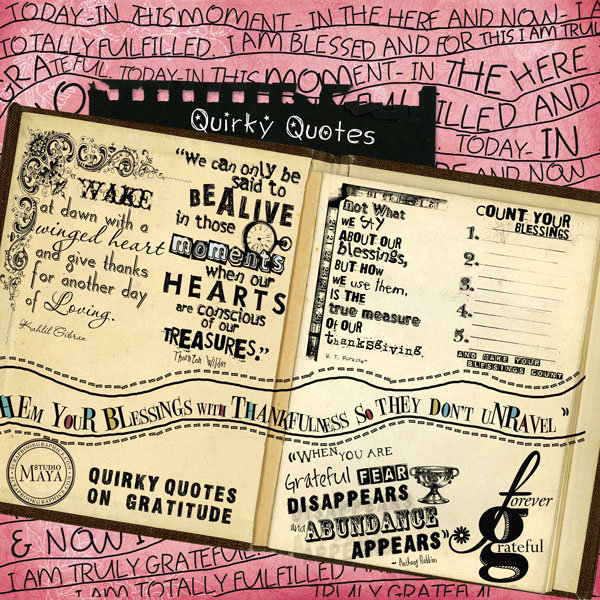 TODAY-IN THIS MOMENT-IN THE HERE AND NOW-I A
TOTALLY FULFILLED. I AM BLESSED AND FOR THIS I AM TRUL
GRATEFUL. TODAY-IN THIS MOMENT-IN THE HERE
FULFILLED AND
TODAY-IN
HERE AND NOW
Quirky Quotes
WAKE
at dawn with a
winged heart
and give thanks
for another day
of Loving.
Kahlil Gibran
"We can only be
said to
BE ALIVE
in those
moments
when our
HEARTS
are conscious
of our
TREASURES."
Thornton Wilder
not What
we SAY
ABOUT OUR
blessings,
BUT HOW
we use them,
IS THE
true measure
OF OUR
thanksgiving.
W. T. Purkiser
COUNT YOUR
BLESSINGS
1.
2.
3.
4.
5.
AND MAKE YOUR
BLESSINGS COUNT
HEM YOUR BLESSINGS WITH THANKFULNESS SO THEY DON'T UNRAVEL"
STUDIO
MAYA
QUIRKY QUOTES
ON GRATITUDE
"WHEN YOU ARE
Grateful FEAR
DISAPPEARS
and ABUNDANCE
APPEARS"
~ Anthony Robbins
forever
grateful
& NOW I
I AM TRULY GRATEFUL.
I AM TOTALLY FULFILLED